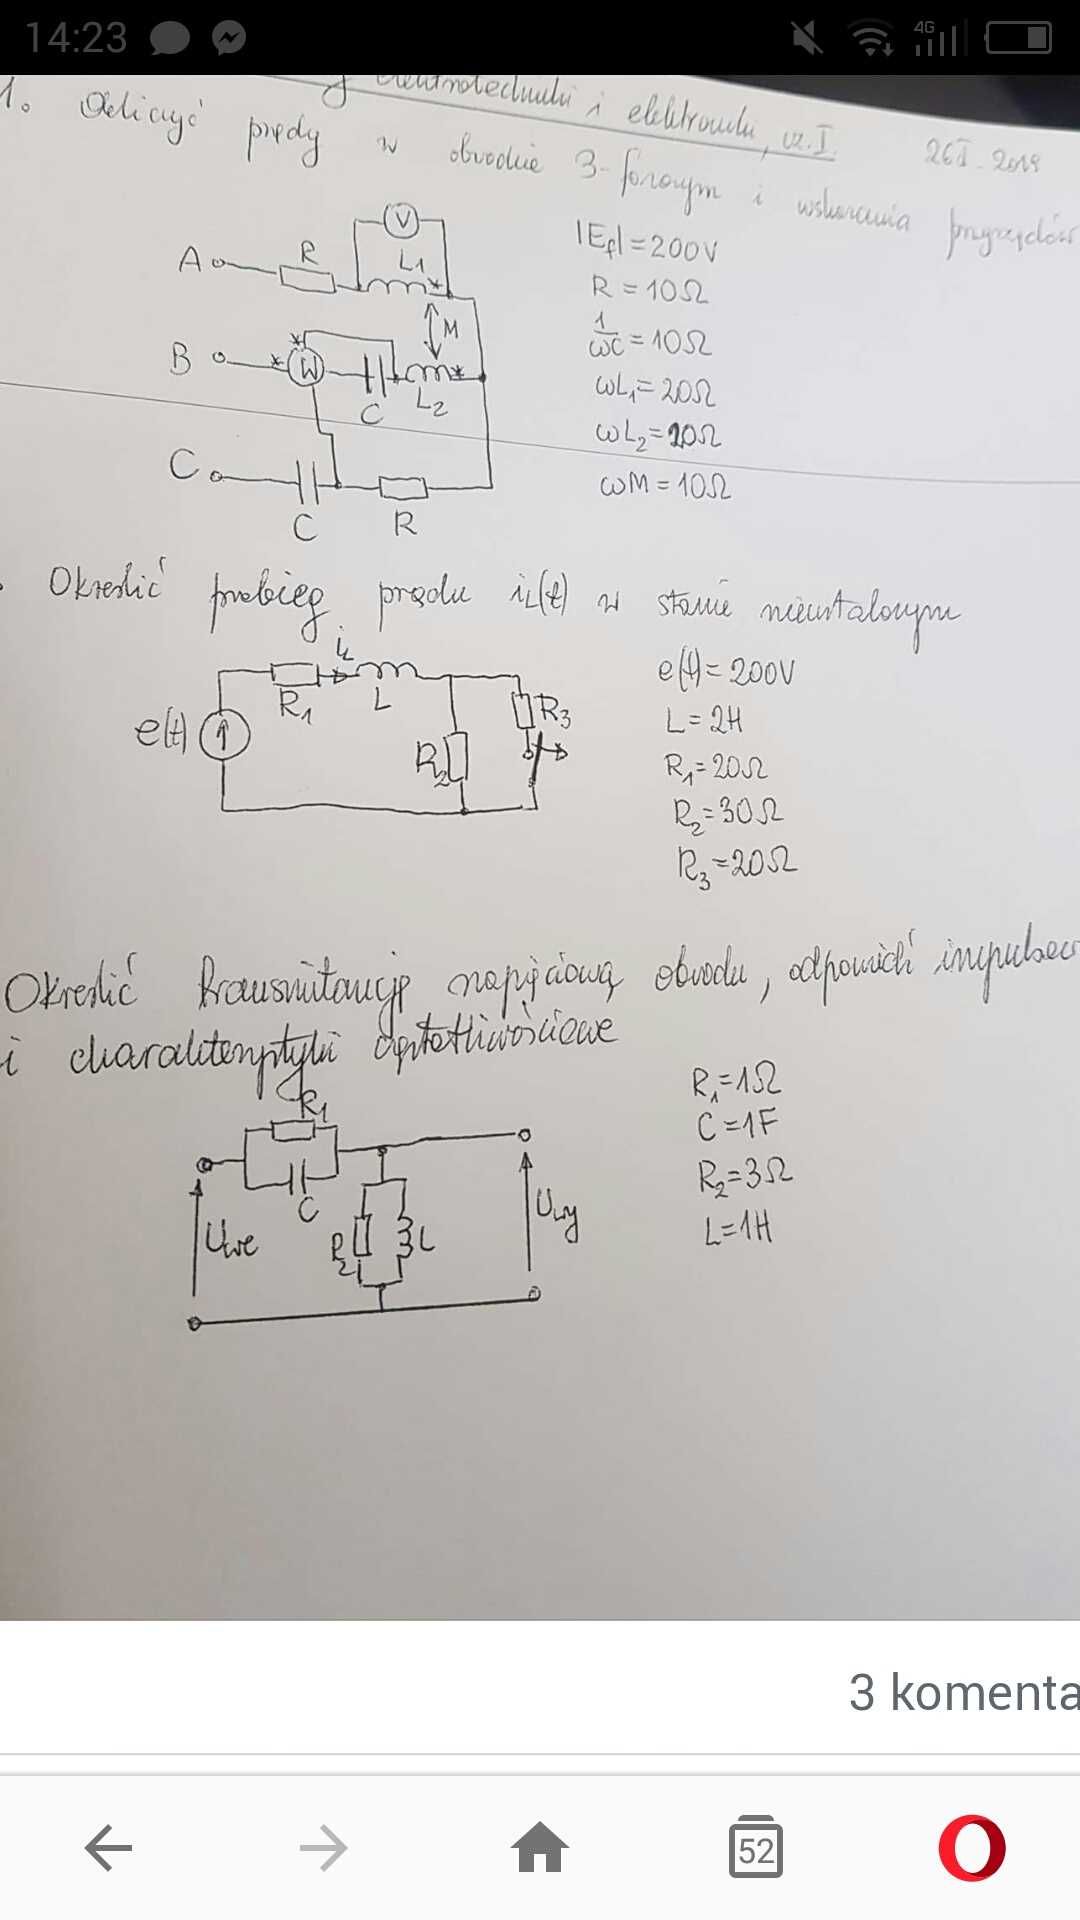 14:23
4G
elektrotechniki i elektroniki, cz. I. 26 I. 2019
1. Obliczyć prądy w obwodzie 3-fazowym i wskazania przyrządów
V
A R L1 |Ef|=200V
R=10Ω
M
1/ωC=10Ω
B * * W C L2 *
ωL1=20Ω
ωL2=20Ω
C C R ωM=10Ω
Określić przebieg prądu iL(t) w stanie nieustalonym
iL
e(t) R1 L R2 R3
e(t)=200V
L=2H
R1=20Ω
R2=30Ω
R3=20Ω
Określić transmitancję napięciową obwodu, odpowiedź impulsow
i charakterystyki częstotliwościowe
R1
C
Uwe R2 L Uwy
R1=1Ω
C=1F
R2=3Ω
L=1H
3 komenta
52